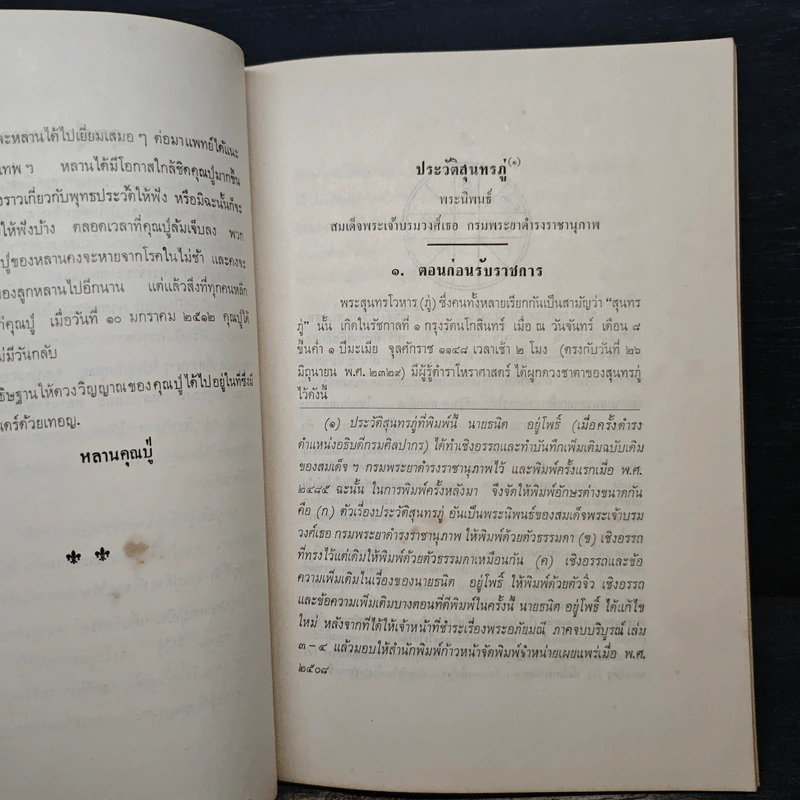 จะหลานได้ไปเยี่ยมเสมอ ๆ ต่อมาแพทย์ได้แนะ
เทพ ฯ หลานได้มีโอกาสใกล้ชิดคุณปู่มากขึ้น
งราวเกี่ยวกับพุทธประวัติให้ฟัง หรือมิฉะนั้นก็จะ
ให้ฟังบ้าง ตลอดเวลาที่คุณปู่ล้มเจ็บลง พวก
ปู่ของหลานคงจะหายจากโรคในไม่ช้า และคงจะ
ของลูกหลานไปอีกนาน แต่แล้วสิ่งที่ทุกคนหลีก
ก่คุณปู่ เมื่อวันที่ ๑๐ มกราคม ๒๕๑๒ คุณปู่ได้
ม่มีวันกลับ
ธิษฐานให้ดวงวิญญาณของคุณปู่ได้ไปอยู่ในที่ซึ่งมี
นตร์ด้วยเทอญ.
หลานคุณปู่
ประวัติสุนทรภู่(๑)
พระนิพนธ์
สมเด็จพระเจ้าบรมวงศ์เธอ กรมพระยาดำรงราชานุภาพ
๑. ตอนก่อนรับราชการ
พระสุนทรโวหาร (ภู่) ซึ่งคนทั้งหลายเรียกกันเป็นสามัญว่า “สุนทร
ภู่” นั้น เกิดในรัชกาลที่ ๑ กรุงรัตนโกสินทร์ เมื่อ ณ วันจันทร์ เดือน ๘
ขึ้นค่ำ ๑ ปีมะเมีย จุลศักราช ๑๑๔๘ เวลาเช้า ๒ โมง (ตรงกับวันที่ ๒๖
มิถุนายน พ.ศ. ๒๓๒๙) มีผู้รู้ตำราโหราศาสตร์ ได้ผูกดวงชาตาของสุนทรภู่
ไว้ดังนี้
(๑) ประวัติสุนทรภู่ที่พิมพ์นี้ นายธนิต อยู่โพธิ์ (เมื่อครั้งดำรง
ตำแหน่งอธิบดีกรมศิลปากร) ได้ทำเชิงอรรถและทำบันทึกเพิ่มเติมฉบับเดิม
ของสมเด็จ ฯ กรมพระยาดำรงราชานุภาพไว้ และพิมพ์ครั้งแรกเมื่อ พ.ศ.
๒๔๘๕ ฉะนั้น ในการพิมพ์ครั้งหลังมา จึงจัดให้พิมพ์อักษรต่างขนาดกัน
คือ (ก) ตัวเรื่องประวัติสุนทรภู่ อันเป็นพระนิพนธ์ของสมเด็จพระเจ้าบรม
วงศ์เธอ กรมพระยาดำรงราชานุภาพ ให้พิมพ์ด้วยตัวธรรมดา (ข) เชิงอรรถ
ที่ทรงไว้แต่เดิมให้พิมพ์ด้วยตัวธรรมดาเหมือนกัน (ค) เชิงอรรถและข้อ
ความเพิ่มเติมในเรื่องของนายธนิต อยู่โพธิ์ ให้พิมพ์ด้วยตัวจิ๋ว เชิงอรรถ
และข้อความเพิ่มเติมบางตอนที่ตีพิมพ์ในครั้งนี้ นายธนิต อยู่โพธิ์ ได้แก้ไข
ใหม่ หลังจากที่ได้ให้เจ้าหน้าที่ชำระเรื่องพระอภัยมณี ภาคจบบริบูรณ์ เล่ม
๓ – ๔ แล้วมอบให้สำนักพิมพ์ก้าวหน้าจัดพิมพ์จำหน่ายเผยแพร่เมื่อ พ.ศ.
๒๕๐๘